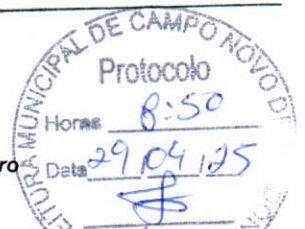 EITURA MUNICIPAL DE CAMPO NOVO D
Protocolo
Horas 8:50
ro
Data 29/04/25